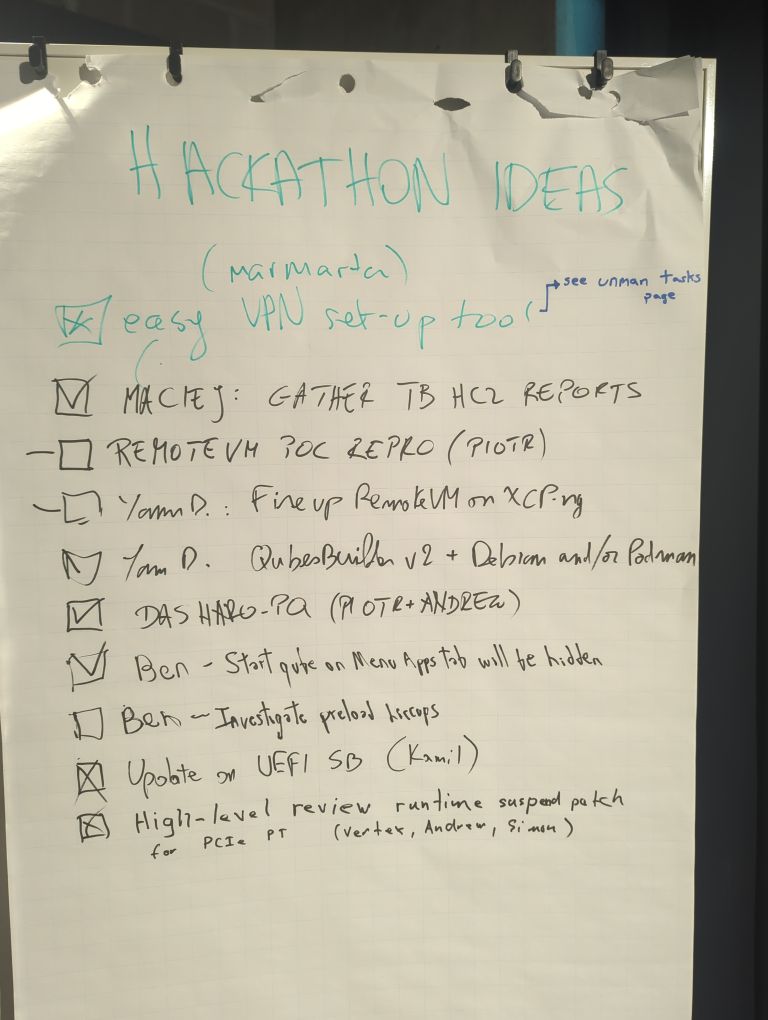 HACKATHON IDEAS
(marmarta)
easy VPN set-up tool
see unman tasks
page
MACIEJ: GATHER TB HCL REPORTS
REMOTEVM POC REPRO (PIOTR)
Yann D.: Fine up RemoteVM on XCP-ng
Yann D. QubesBuilder v2 + Debian and/or Podman
DASHARO-PQ (PIOTR+ANDREW)
Ben - Start qube on Menu Apps tab will be hidden
Ben - Investigate preload hiccups
Update on UEFI SB (Kamil)
High-level review runtime suspend patch
for PCIe PT (Vertex, Andrew, Simon)